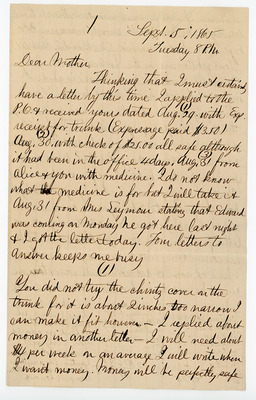 1
Sept. 5, 1865
Tuesday 8 P.M.
Dear Mother
Thinking that I must certainly
have a letter by this time I applied to the
P.O. & received yours dated Aug. 29. with Exp.
receipt for trunk (Expressage paid $3.50)
Aug, 30. with check of $25.00 all safe although
it had been in the office 4 days, Aug, 31 from
Alice & you with medicine. I do not know
what medicine is for but I will take it
Aug, 31 from Mrs Seymour stating that Edward
was coming on Monday he got here last night
& I got the letter today. Four letters to
Answer keeps me busy
(1)
You did not try the chintz cover on the
trunk for it is about 2 inches too narrow I
can make it fit however — I replied about
money in another letter — I will need about
$4 per week on an average I will write when
I want money. Money will be perfectly safe